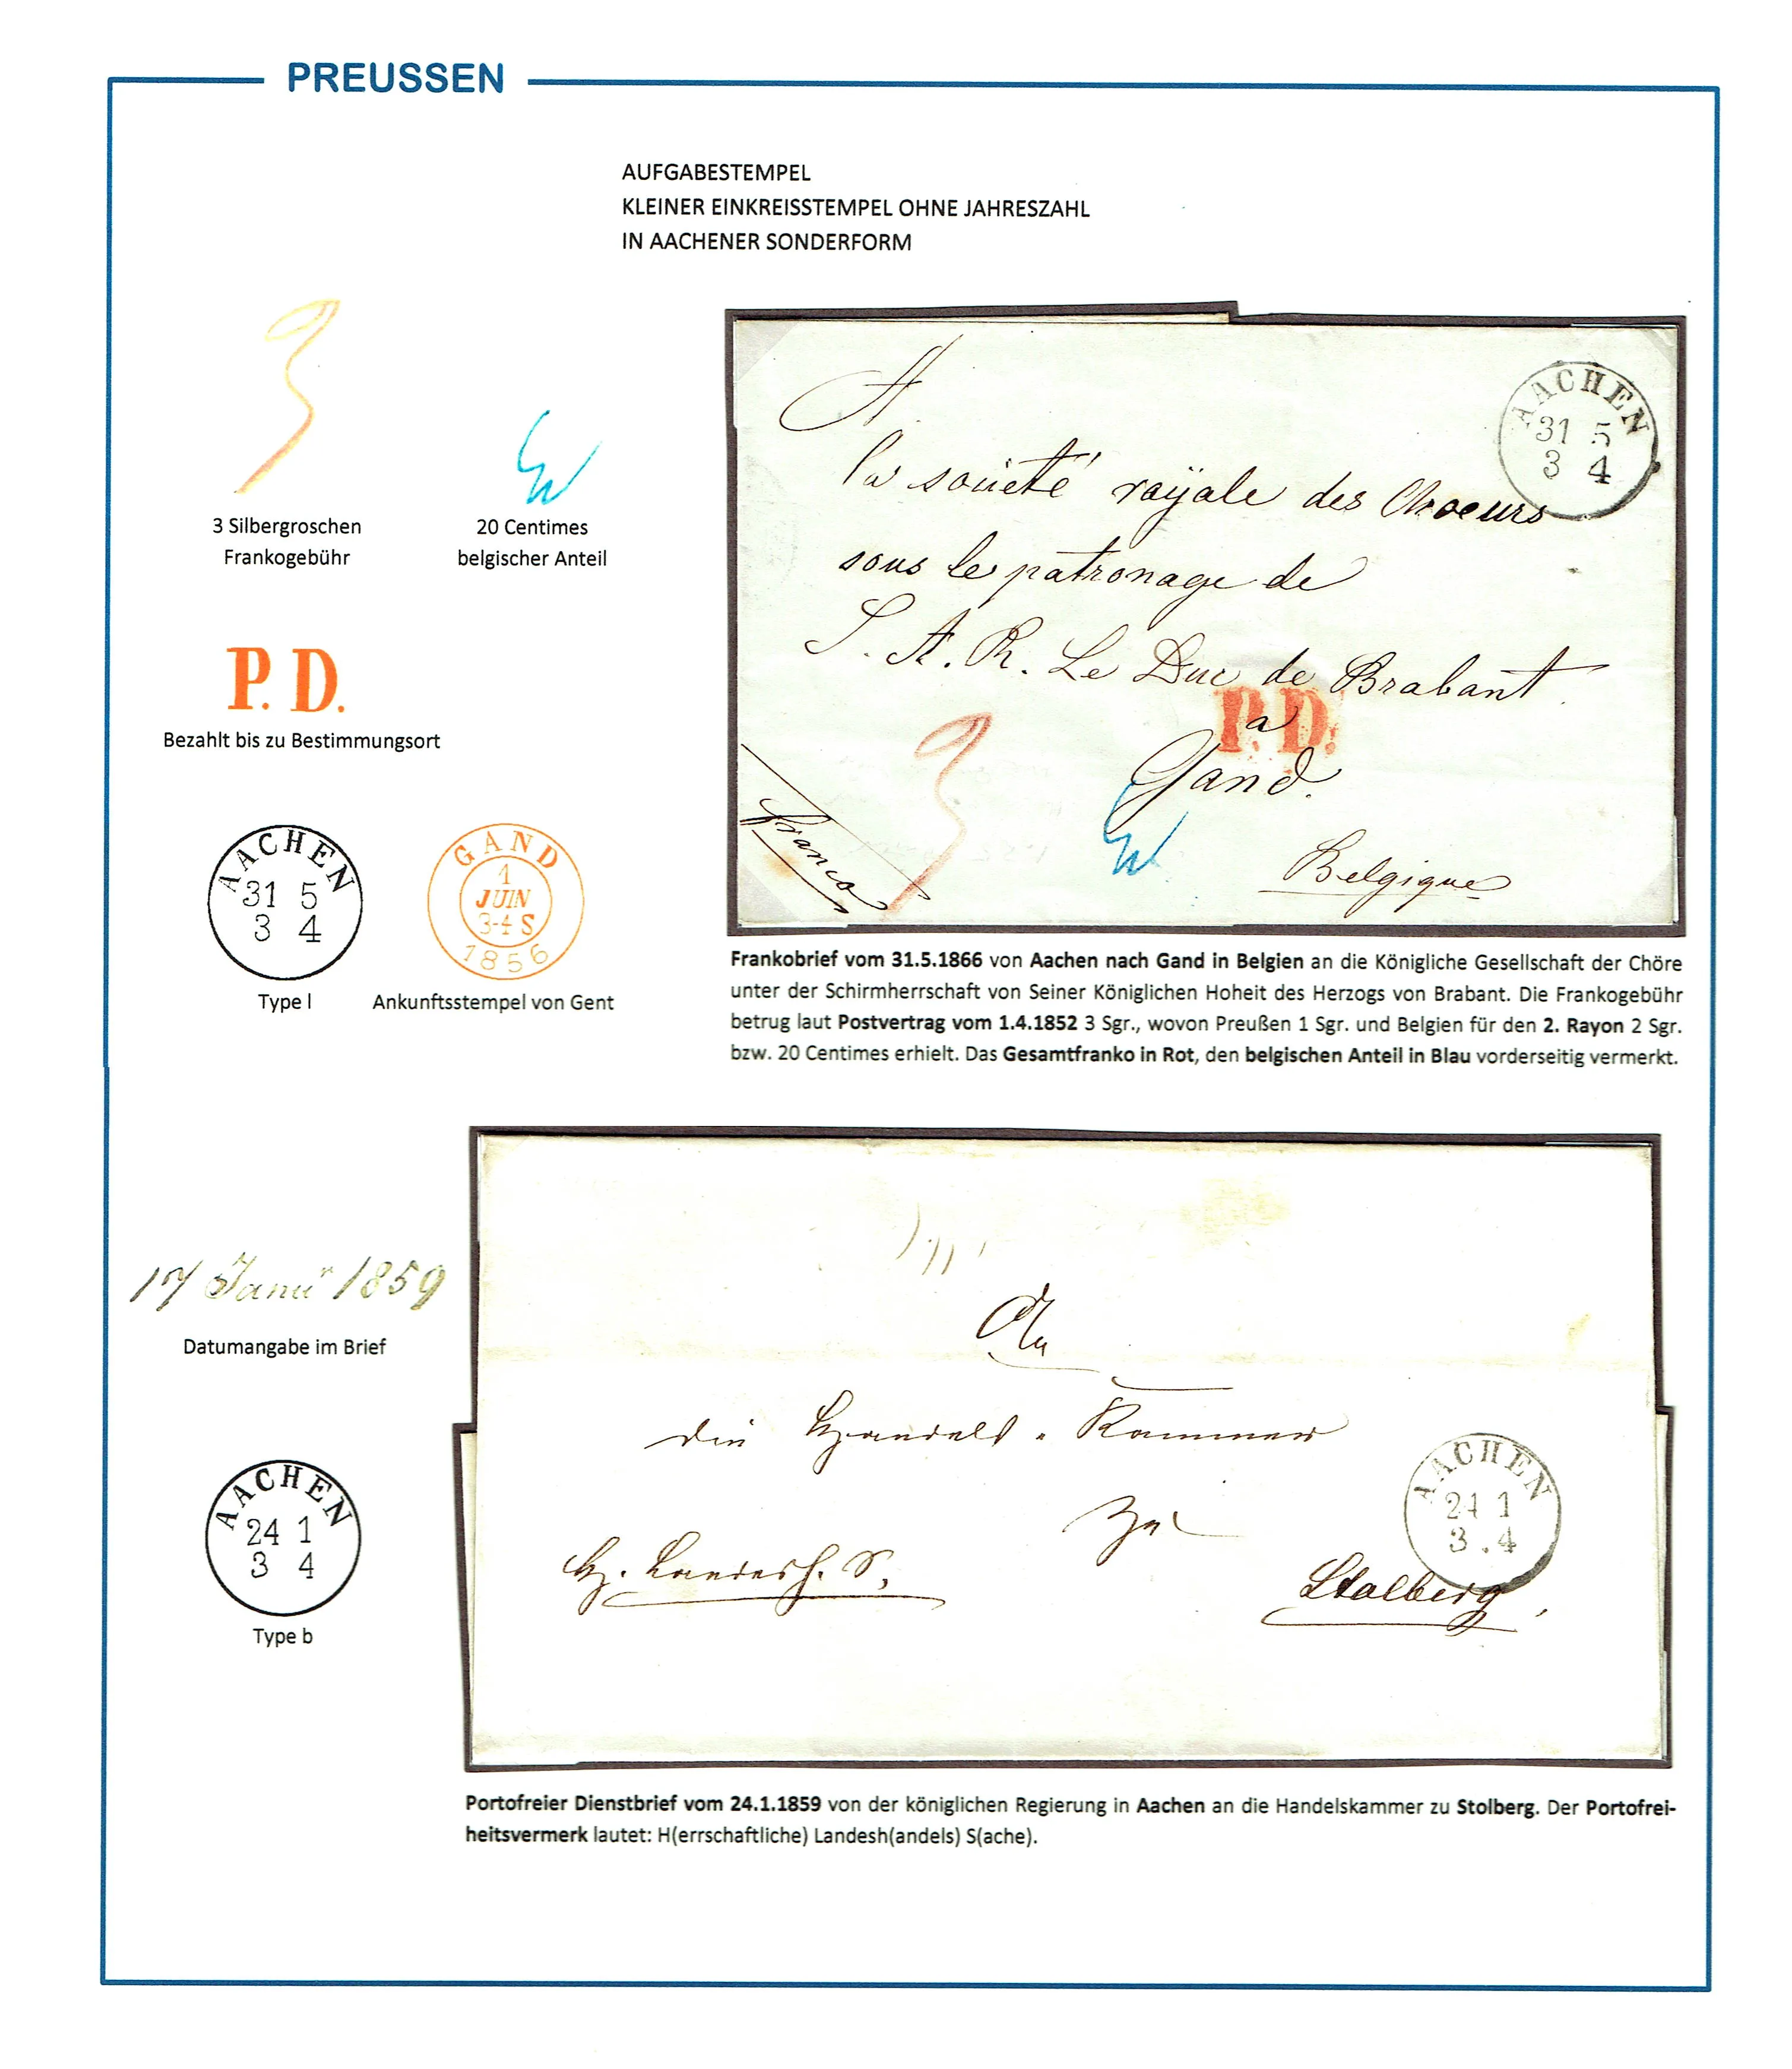 PREUSSEN
AUFGABESTEMPEL
KLEINER EINKREISSTEMPEL OHNE JAHRESZAHL
IN AACHENER SONDERFORM
3
3 Silbergroschen
Frankogebühr
20 Centimes
belgischer Anteil
P. D.
Bezahlt bis zu Bestimmungsort
AACHEN
31 5
3 4
Type l
GAND
1
JUIN
3-4 S
1856
Ankunftsstempel von Gent
A
la société royale des Choeurs
sous le patronage de
S. A. R. Le Duc de Brabant
a
Gand.
Belgique
franco
3
P. D.
AACHEN
31 5
3 4
Frankobrief vom 31.5.1866 von Aachen nach Gand in Belgien an die Königliche Gesellschaft der Chöre
unter der Schirmherrschaft von Seiner Königlichen Hoheit des Herzogs von Brabant. Die Frankogebühr
betrug laut Postvertrag vom 1.4.1852 3 Sgr., wovon Preußen 1 Sgr. und Belgien für den 2. Rayon 2 Sgr.
bzw. 20 Centimes erhielt. Das Gesamtfranko in Rot, den belgischen Anteil in Blau vorderseitig vermerkt.
17 Janur 1859
Datumangabe im Brief
AACHEN
24 1
3 4
Type b
An
die Handels-Kammer
zu
H. Landesh. S.
Stolberg,
AACHEN
24 1
3 . 4
Portofreier Dienstbrief vom 24.1.1859 von der königlichen Regierung in Aachen an die Handelskammer zu Stolberg. Der Portofrei-
heitsvermerk lautet: H(errschaftliche) Landesh(andels) S(ache).